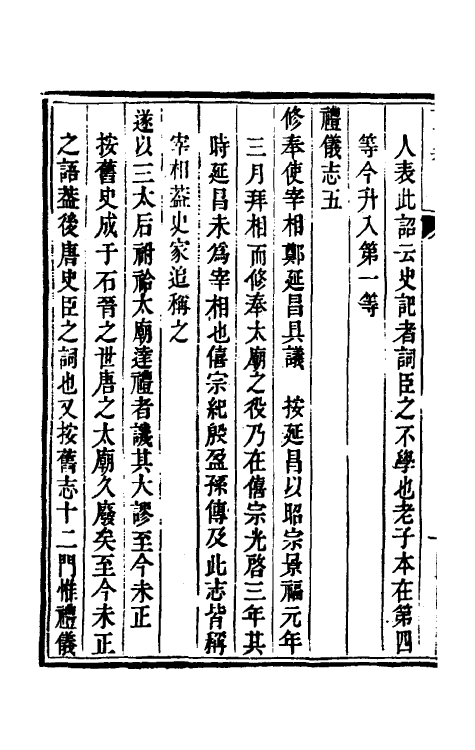 人表此詔云史記者詞臣之不學也老子本在第四
等今升入第一等
禮儀志五
修奉使宰相鄭延昌具議　按延昌以昭宗景福元年
三月拜相而修奉太廟之役乃在僖宗光啓三年其
時延昌未爲宰相也僖宗紀殷盈孫傳及此志皆稱
宰相葢史家追稱之
遂以三太后祔祫太廟達禮者譏其大謬至今未正
按舊史成于石晉之世唐之太廟久廢矣至今未正
之語葢後唐史臣之詞也又按舊志十二門惟禮儀